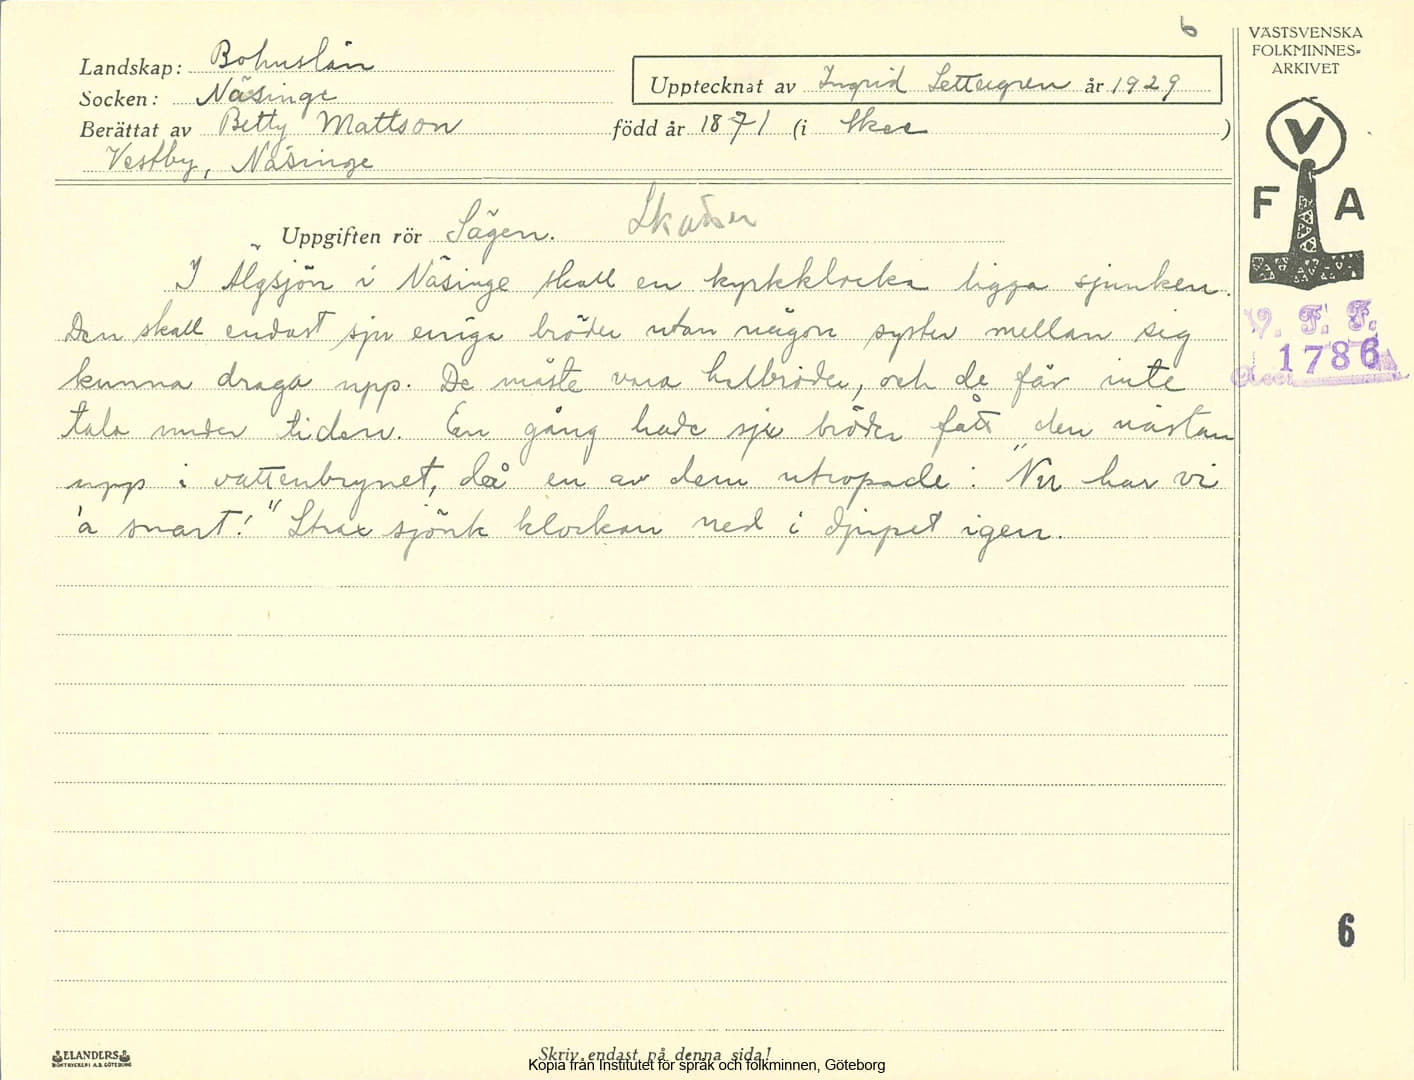 6
VÄSTSVENSKA
FOLKMINNES-
ARKIVET
Landskap: Bohuslän
Socken: Näsinge
Upptecknat av Ingrid år 1929
Berättat av Betty Mattson född år 1871 (i Skee )
Vestby, Näsinge
V
F A
Uppgiften rör Sägen. Skatter
I Älgsjön i Näsinge skall en kyrkklocka ligga sjunken.
Den skall endast sju eniga bröder utan någon syster mellan sig
kunna draga upp. De måste vara helbröder, och de får inte
tala under tiden. En gång hade sju bröder fått den nästan
upp i vattenbrynet, då en av dem utropade: "Nu har vi
'a snart!" Strax sjönk klockan ned i djupet igen.
V. F. F.
Acc. 1786
6
ELANDERS
BOKTRYCKERI A.B. GÖTEBORG
Skriv endast på denna sida!
Kopia från Institutet för språk och folkminnen, Göteborg